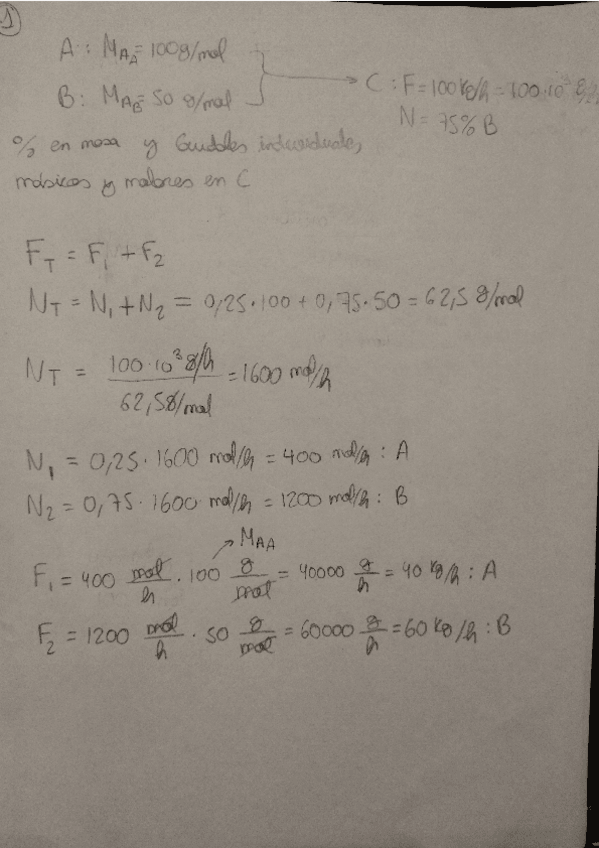 1
A : M_AA = 100 g/mol
B : M_AB = 50 g/mol
C : F = 100 kg/h = 100·10³ g/h
N = 75% B
% en masa y Caudales individuales,
másicos y molares en C
F_T = F₁ + F₂
N_T = N₁ + N₂ = 0,25·100 + 0,75·50 = 62,5 g/mol
N_T = (100·10³ g/h) / (62,5 g/mol) = 1600 mol/h
N₁ = 0,25 · 1600 mol/h = 400 mol/h : A
N₂ = 0,75 · 1600 mol/h = 1200 mol/h : B
M_AA
F₁ = 400 mol/h · 100 g/mol = 40000 g/h = 40 kg/h : A
F₂ = 1200 mol/h · 50 g/mol = 60000 g/h = 60 kg/h : B